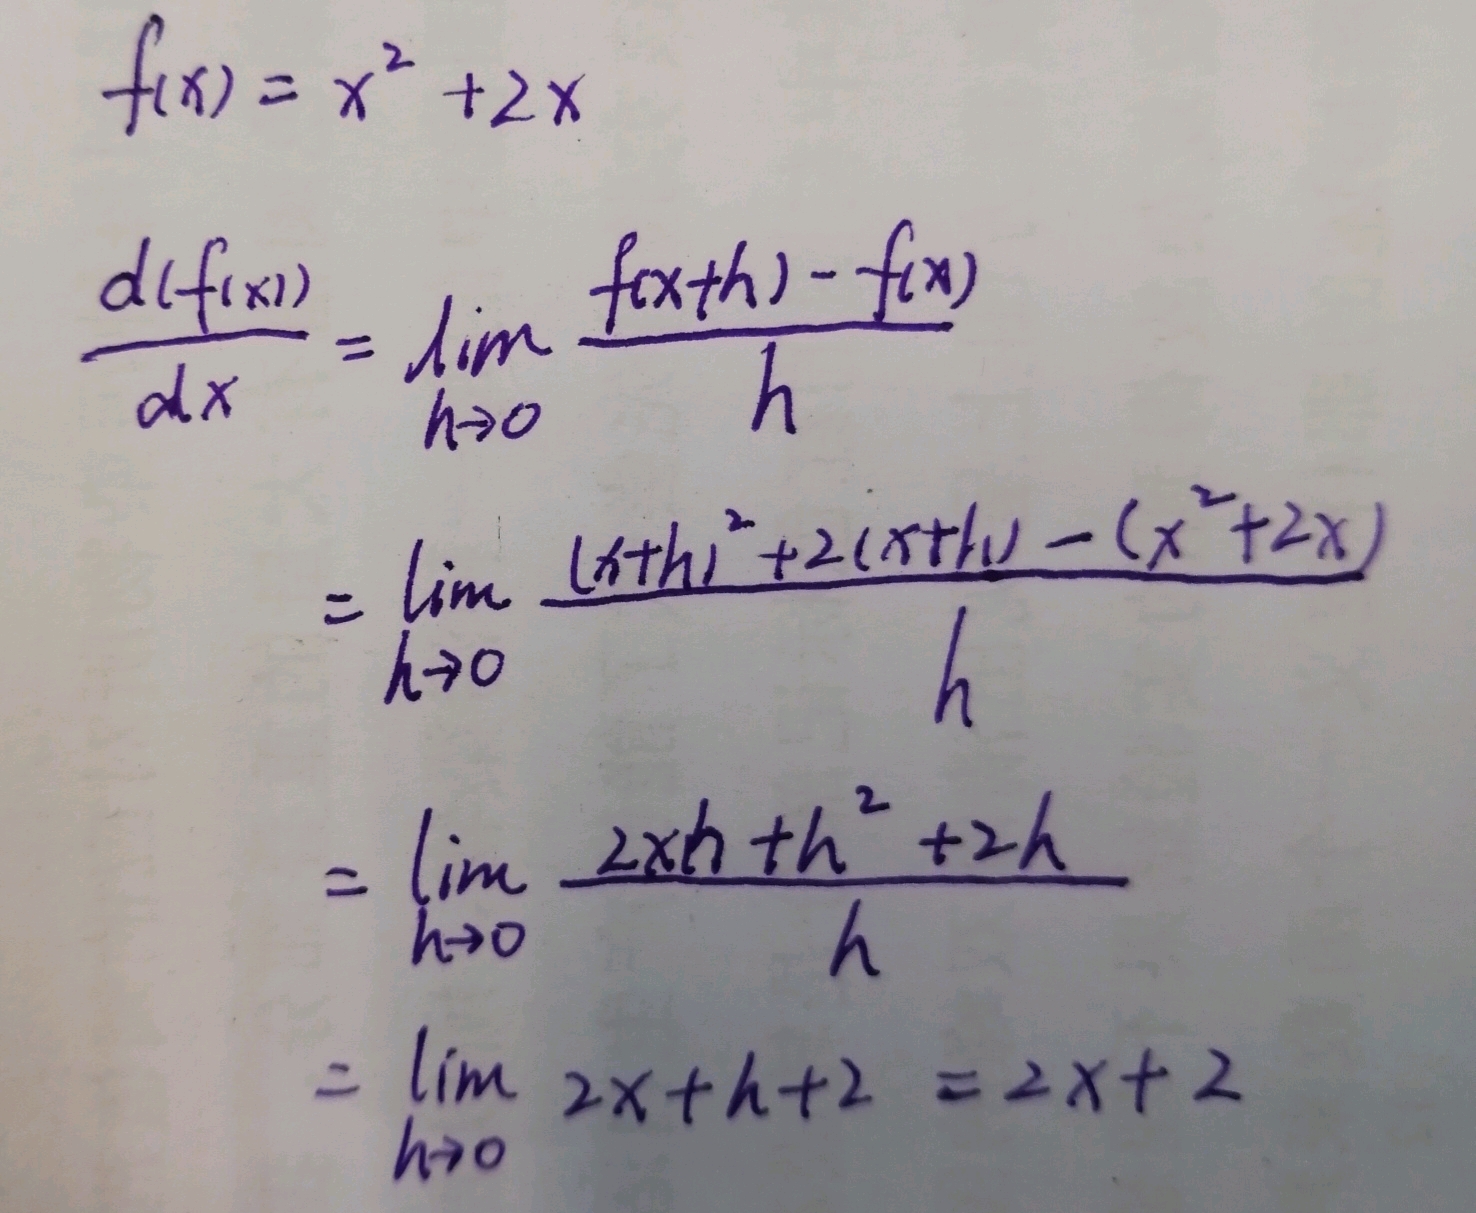 f(x) = x² + 2x
d(f(x))/dx = lim h→0 (f(x+h) - f(x))/h
= lim h→0 ((x+h)² + 2(x+h) - (x² + 2x))/h
= lim h→0 (2xh + h² + 2h)/h
= lim h→0 2x + h + 2 = 2x + 2